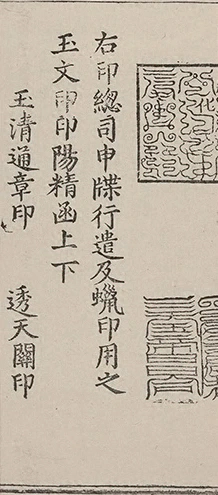 右印總司申牒行遣及蠟印用之
玉文申印陽精函上下
玉清通章印 透天關印